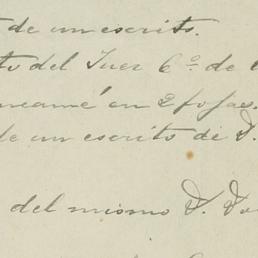 de un escrito.
del Juez 6º de
en 2 fojas.
de un escrito de D.
del mismo D.